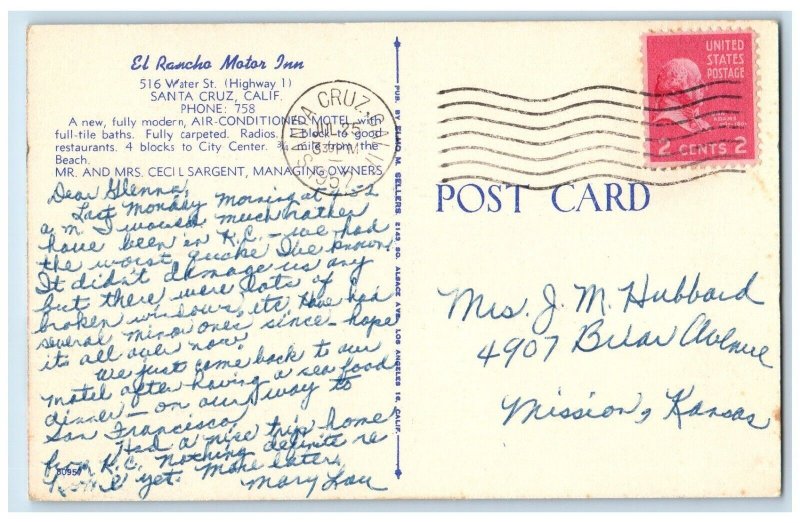 El Rancho Motor Inn
516 Water St. (Highway 1)
SANTA CRUZ, CALIF.
PHONE: 758
A new, fully modern, AIR-CONDITIONED MOTEL with
full-tile baths. Fully carpeted. Radios. 1 block to good
restaurants. 4 blocks to City Center. ¾ mile from the
Beach.
MR. AND MRS. CECIL SARGENT, MANAGING OWNERS
Dear Glenna,
Last Monday morning at 4:52
a.m. I would much rather
have been in K.C. – we had
the worst quake I've known!
It didn't damage us any
but there were lots of
broken windows, etc. Have had
several minor ones since – hope
it's all over now!
We just came back to our
motel after having a sea food
dinner – on our way to
San Francisco.
Had a nice trip home
from K.C. Nothing definite re
home yet. More later,
Mary Lou
PUB. BY ELMO M. SELLERS 2143 SO. ALSACE AVE., LOS ANGELES 16, CALIF.
SANTA CRUZ, CALIF.
JUL 25
PM
1952
UNITED
STATES
POSTAGE
JOHN ADAMS
2 CENTS 2
POST CARD
Mrs. J. M. Hubbard
4907 Briar Avenue
Mission, Kansas